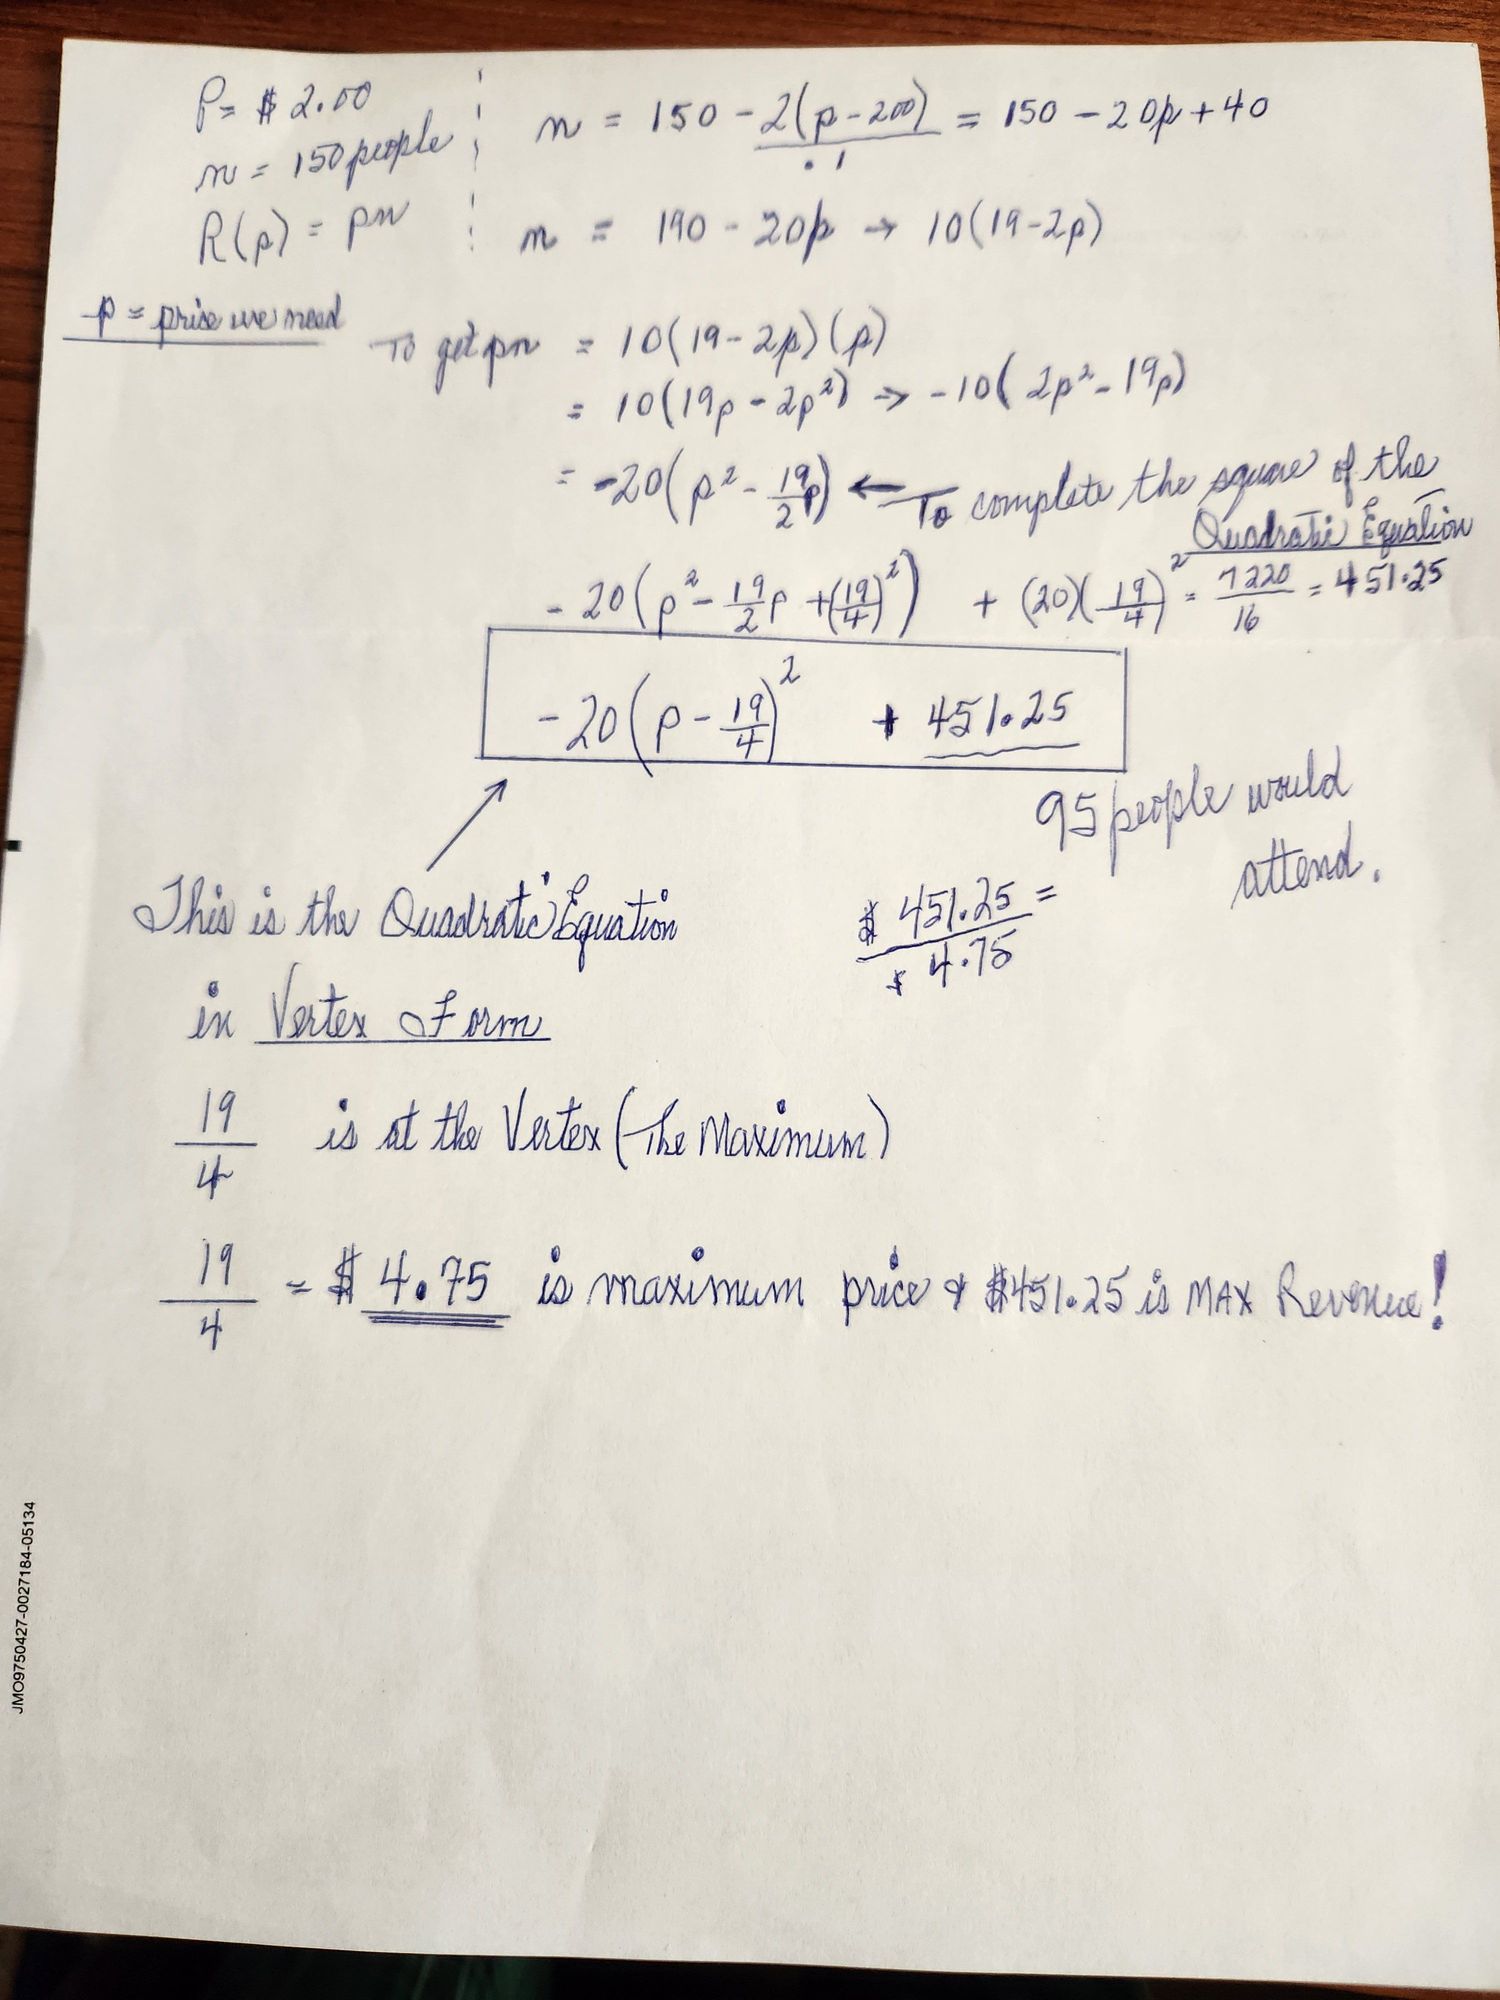 P = $ 2.00
n = 150 people
R(p) = pn
n = 150 - 2(p-200)/.1 = 150 - 20p + 40
n = 190 - 20p → 10(19-2p)
p = price we need
To get pn = 10(19-2p)(p)
= 10(19p - 2p²) → -10(2p² - 19p)
= -20(p² - 19/2 p) ← To complete the square of the
Quadratic Equation
-20(p² - 19/2 p + (19/4)²) + (20)(19/4)² = 7220/16 = 451.25
-20(p - 19/4)² + 451.25
95 people would
attend.
$ 451.25 =
$ 4.75
This is the Quadratic Equation
in Vertex Form
19/4 is at the Vertex (The Maximum)
19/4 = $ 4.75 is maximum price & $451.25 is MAX Revenue!
JMO9750427-0027184-05134